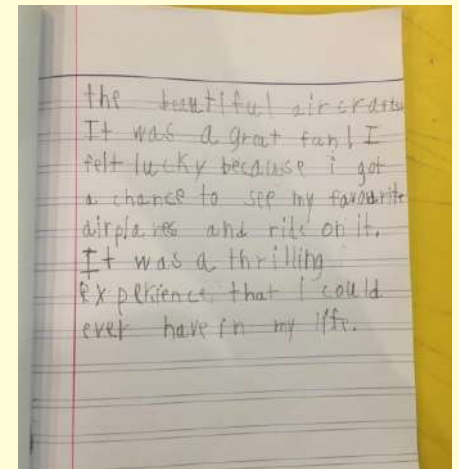 the beautiful aircrafts
It was a great fan! I
felt lucky because i got
a chance to see my favourite
airplanes and ride on it.
It was a thrilling
experience that i could
ever have in my life.